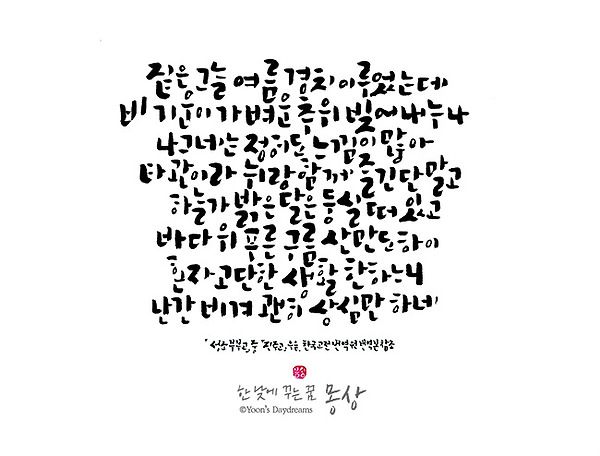 짙은 그늘 여름 경치 이루었는데
비 기운이 가벼운 추위 빚어내누나
나그네는 정히도 느낌이 많아
타관이라 뉘랑 함께 즐긴단 말고
하늘가 밝은 달은 둥실 떠 있고
바다 위 푸른 구름 산만도 하이
혼자 고단한 생활 한하느니
난간 비겨 괜히 상심만 하네
「성소부부고」 중 "진주고", 한국고전번역원 번역본 참조
한낮에 꾸는 꿈 몽상
©Yoon's Daydreams